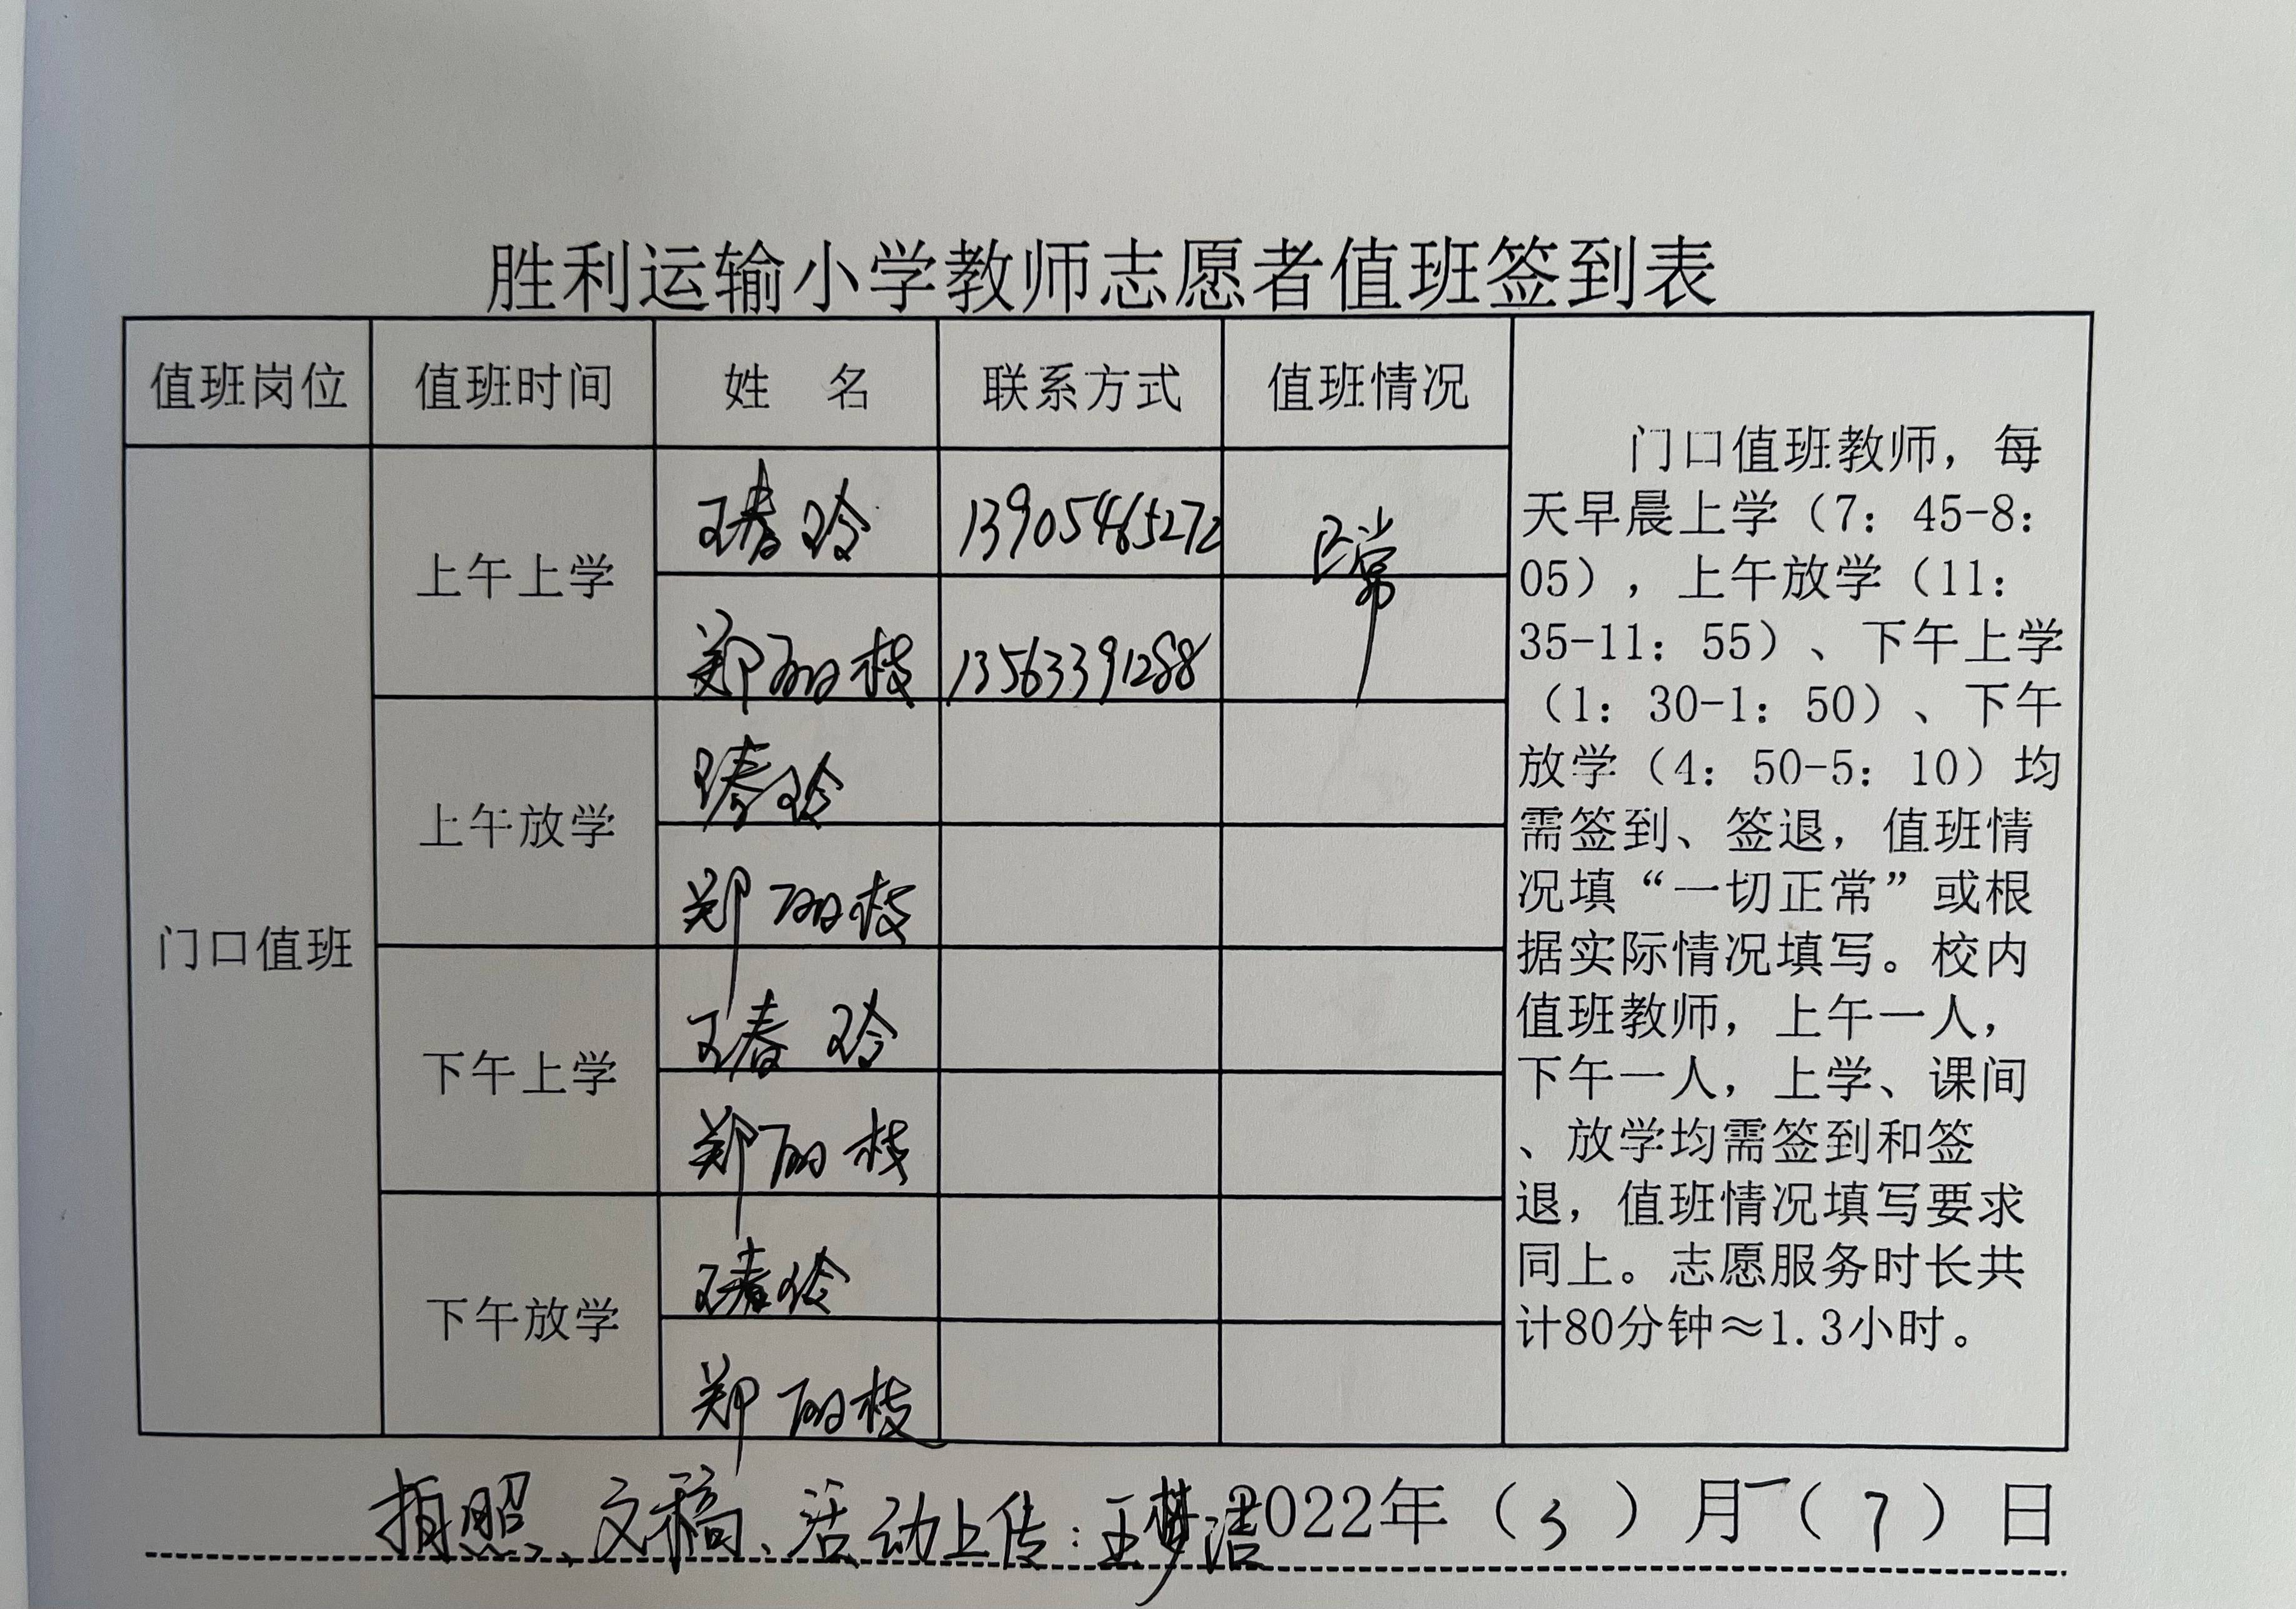 胜利运输小学教师志愿者值班签到表
值班岗位 值班时间 姓 名 联系方式 值班情况
门口值班
上午上学
王春玲 13905465272 正常
郑丽枝 13563391288
上午放学
王春玲
郑丽枝
下午上学
王春玲
郑丽枝
下午放学
王春玲
郑丽枝
门口值班教师，每
天早晨上学（7：45-8：
05），上午放学（11：
35-11：55）、下午上学
（1：30-1：50）、下午
放学（4：50-5：10）均
需签到、签退，值班情
况填“一切正常”或根
据实际情况填写。校内
值班教师，上午一人，
下午一人，上学、课间
、放学均需签到和签
退，值班情况填写要求
同上。志愿服务时长共
计80分钟≈1.3小时。
拍照、文稿、活动上传：王梦洁 2022年（3）月（7）日